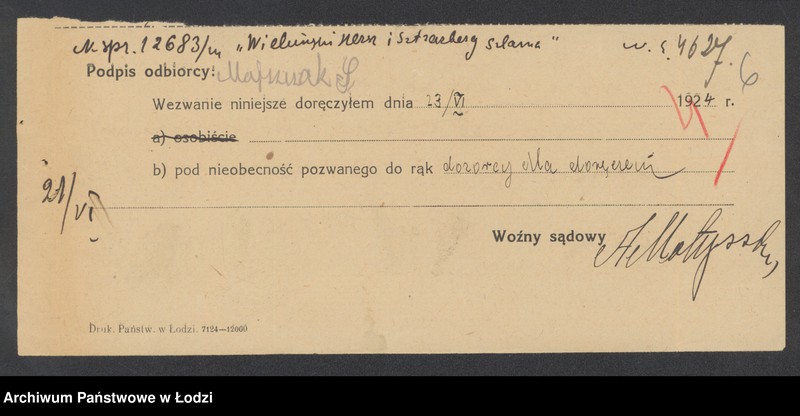 N spr. 12683/m „Wieluński Hersz i Sztrasberg Szlama” w. ś. 4627.
6
Podpis odbiorcy:
Wezwanie niniejsze doręczyłem dnia 23/VI 1924 r.
a) osobiście
b) pod nieobecność pozwanego do rąk dozorcy dla doręczenia
21/VI
Woźny sądowy
Druk. Państw. w Łodzi. 7124—12000
Archiwum Państwowe w Łodzi